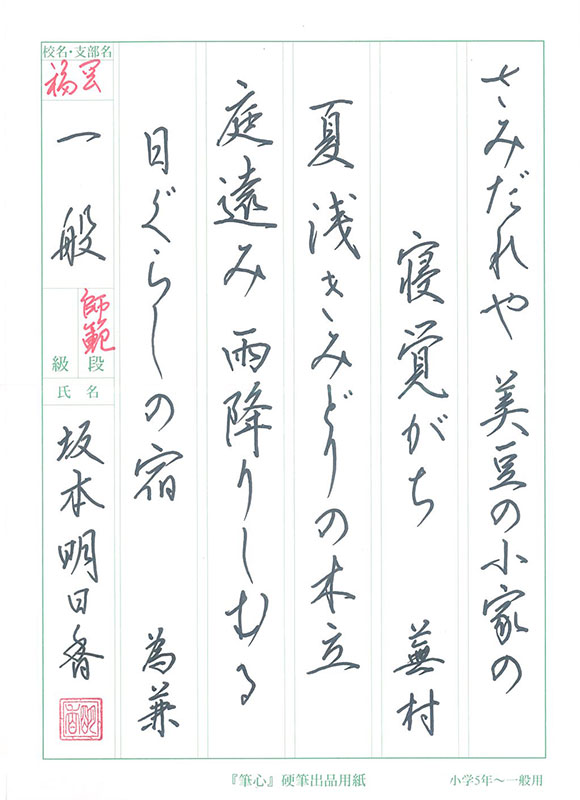 さみだれや美豆の小家の
寝覚がち　蕪村
夏浅きみどりの木立
庭遠み雨降りしむる
日ぐらしの宿　為兼
校名・支部名
福岡
一般
師範
級 段
氏名
坂本明日香
『筆心』硬筆出品用紙
小学5年〜一般用